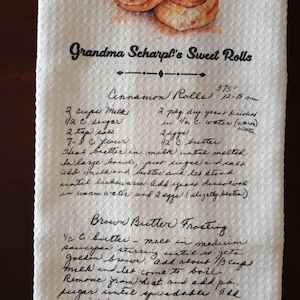 Grandma Scharpf's Sweet Rolls
Cinnamon Rolls 375°
12-15 min
2 cups milk 2 pkg dry yeast dissolved
1/2 C sugar in 1/2 C water (warm)
2 tsp salt 2 eggs
7-8 C flour 1/2 C butter
Heat butter in milk until melted
In large bowl, put sugar and salt
add milk and butter and let stand
until lukewarm. add yeast dissolved
in warm water and 2 eggs (slightly beaten)
Brown Butter Frosting
1/2 C butter - melt in medium
saucepan stirring until it gets
golden brown. add about 1/3 cup
milk and let come to boil.
Remove from heat and add
sugar until spreadable. add